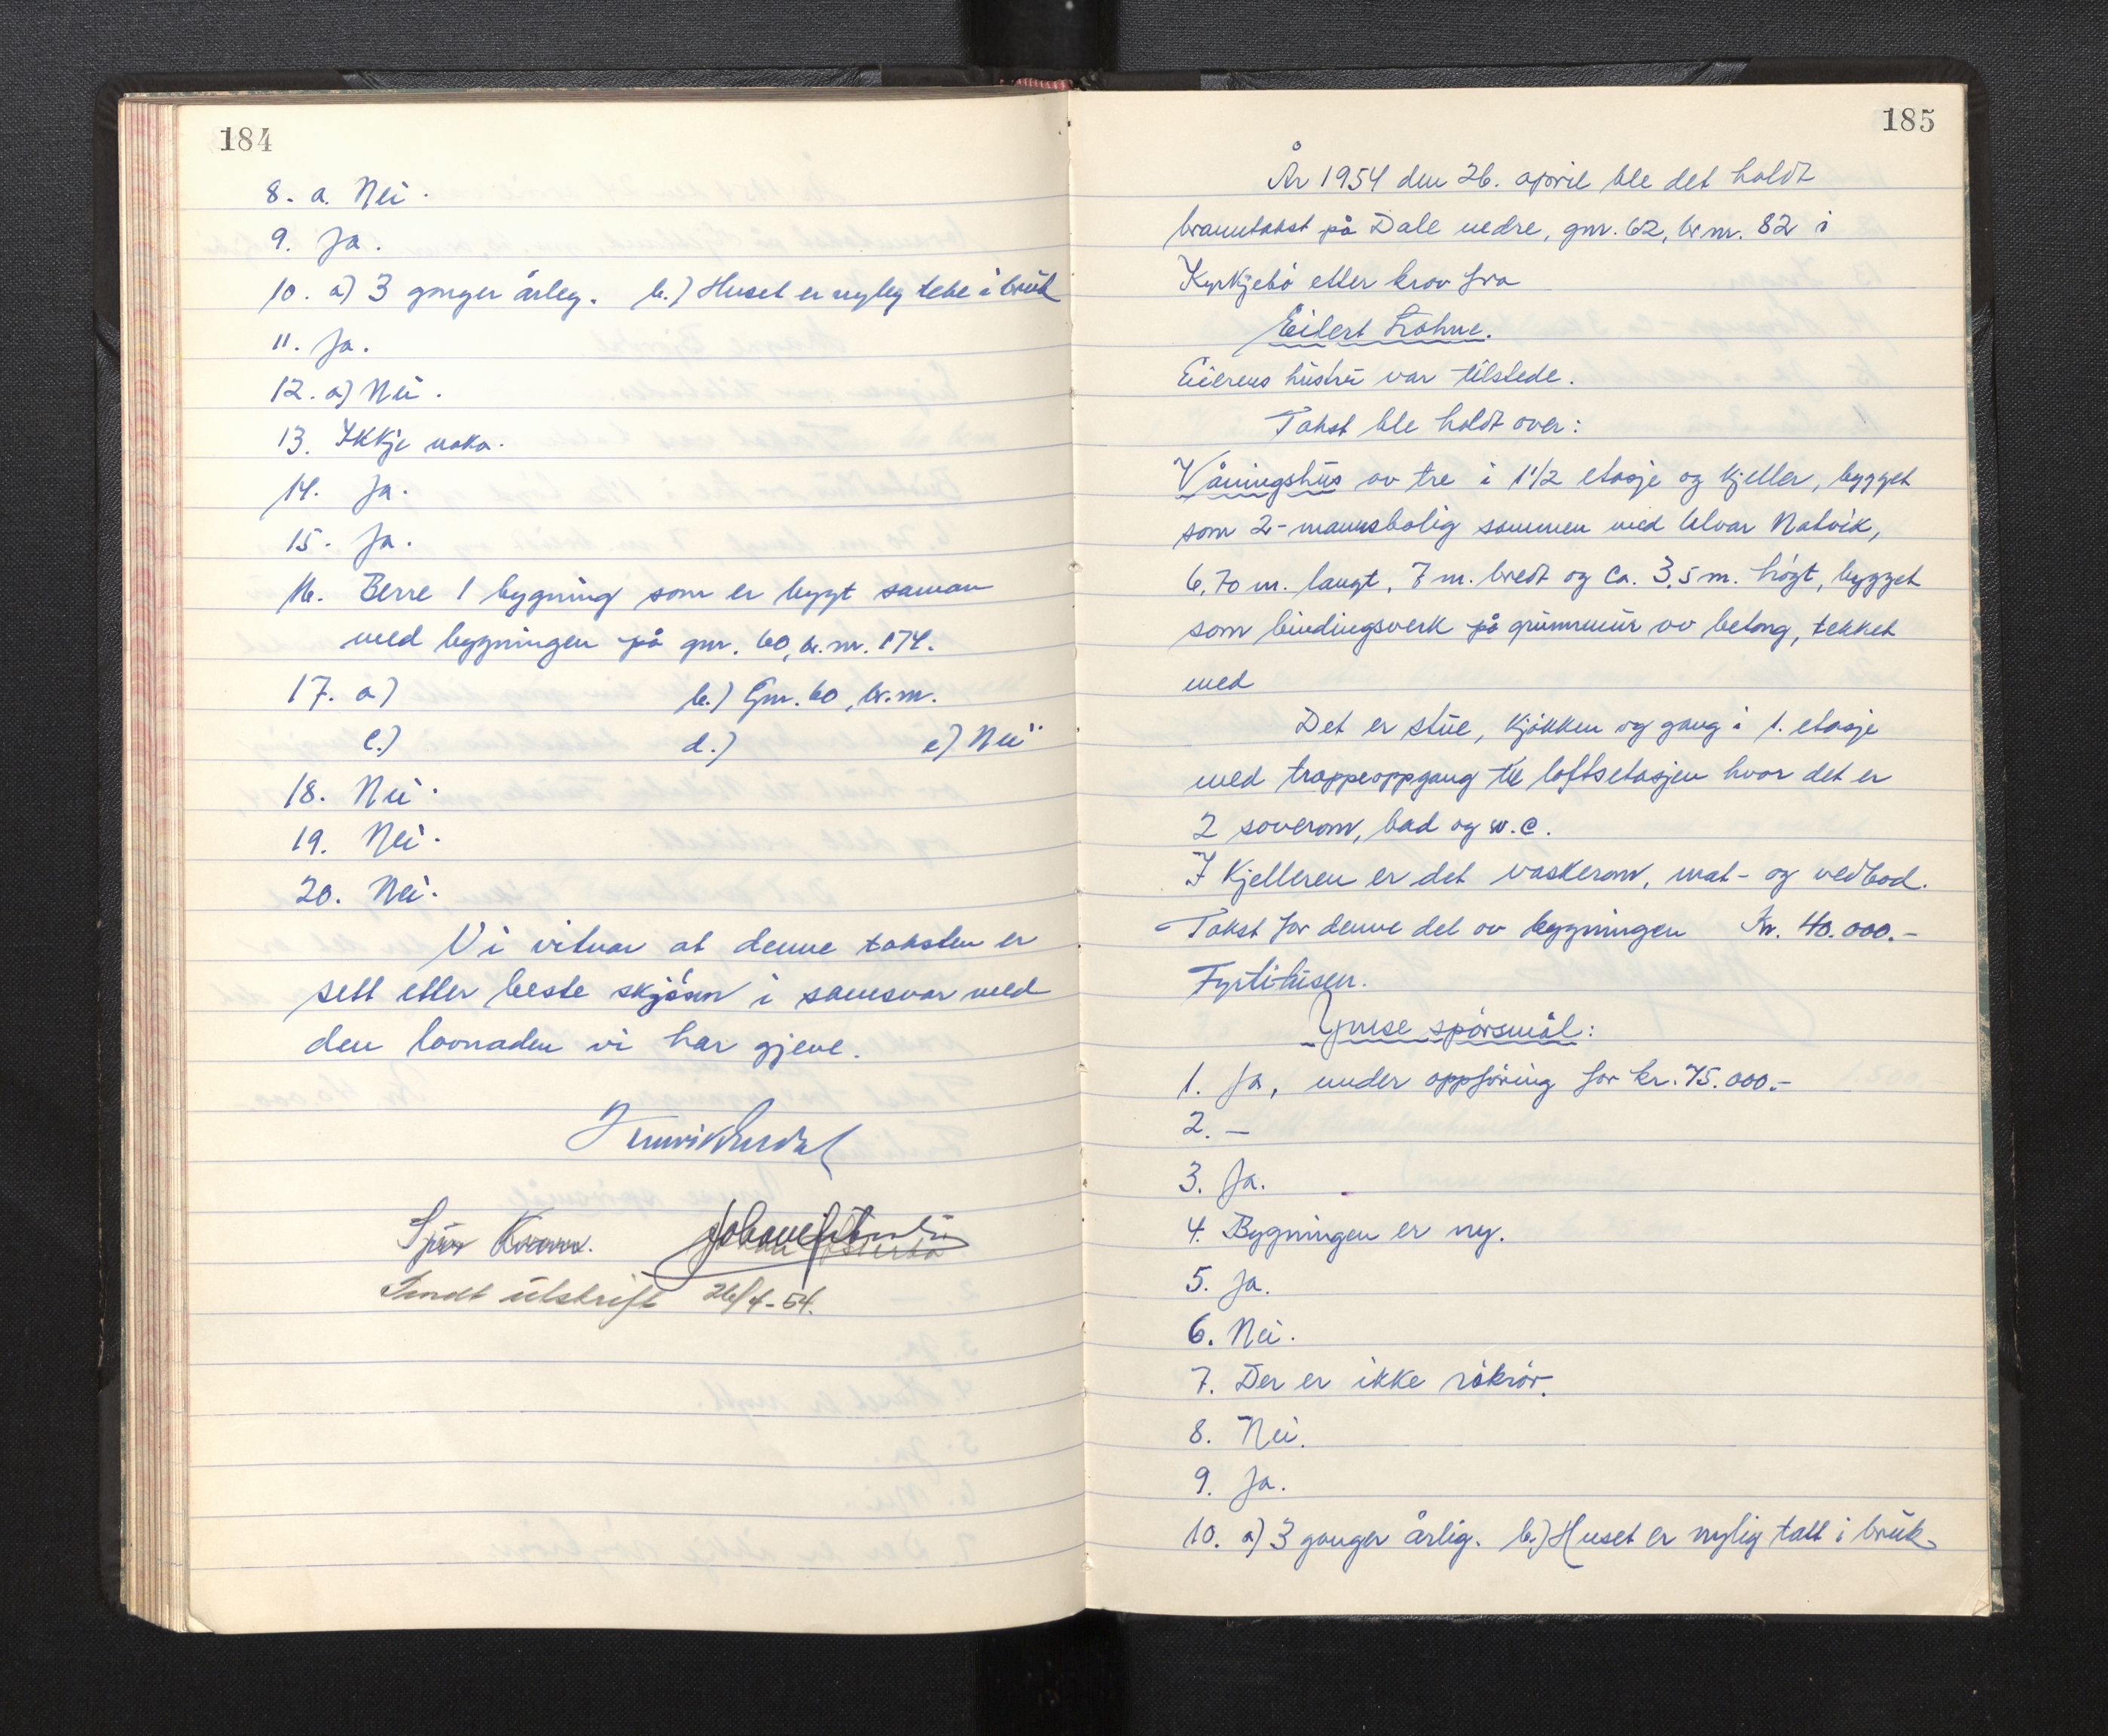 184
8. a. Nei.
9. Ja.
10. a) 3 ganger årleg. b.) Huset er nyleg teke i bruk
11. Ja.
12. a) Nei.
13. Ikkje noko.
14. Ja.
15. Ja.
16. Berre 1 bygning som er bygt saman
med bygningen på gnr. 60, br. nr. 174.
17. a) b.) Gnr. 60, br.nr.
c.) d.) e) Nei
18. Nei.
19. Nei.
20. Nei.
Vi vitnar at denne taksten er
sett etter beste skjönn i samsvar med
den lovnaden vi har gjeve.
Sendt utskrift 26/4-54.
185
År 1954 den 26. april ble det holdt
branntakst på Dale nedre, gnr. 62, br nr. 82 i
Kyrkjebö etter krav fra
Eilert Lohne.
Eierens hustru var tilstede.
Takst ble holdt over:
Våningshus av tre i 1 1/2 etasje og kjeller, bygget
som 2-mannsbolig sammen med Natvik,
6,70 m. langt, 7 m. bredt og ca. 3,5 m. högt, bygget
som bindingsverk på grunnmur av betong, tekket
med
Det er stue, kjökken og gang i 1. etasje
med trappeoppgang til loftsetasjen hvor det er
2 soverom, bad og w.c.
I Kjelleren er det vaskerom, mat- og vedbod.
Takst for denne del av bygningen Kr. 40.000.-
Fyrti-tusen.
Ymse spörsmål:
1. Ja, under oppföring for kr. 75.000.-
2. —
3. Ja.
4. Bygningen er ny.
5. Ja.
6. Nei.
7. Der er ikke rökrör.
8. Nei.
9. Ja.
10. a) 3 ganger årlig. b.) Huset er nylig tatt i bruk